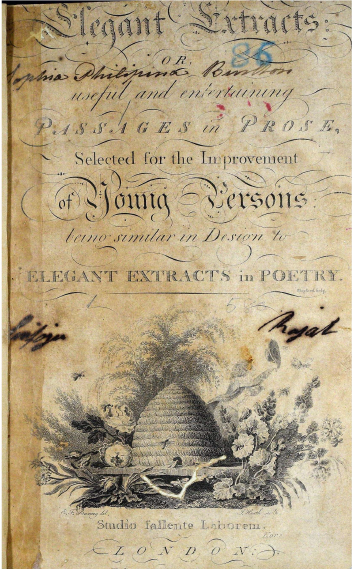 Elegant Extracts:
86
OR,
Sophia Philipina
useful and entertaining
PASSAGES in PROSE,
Selected for the Improvement
of Young Persons:
being similar in Design to
ELEGANT EXTRACTS in POETRY.
Rajah
Studio fallente Laborem.
LONDON: